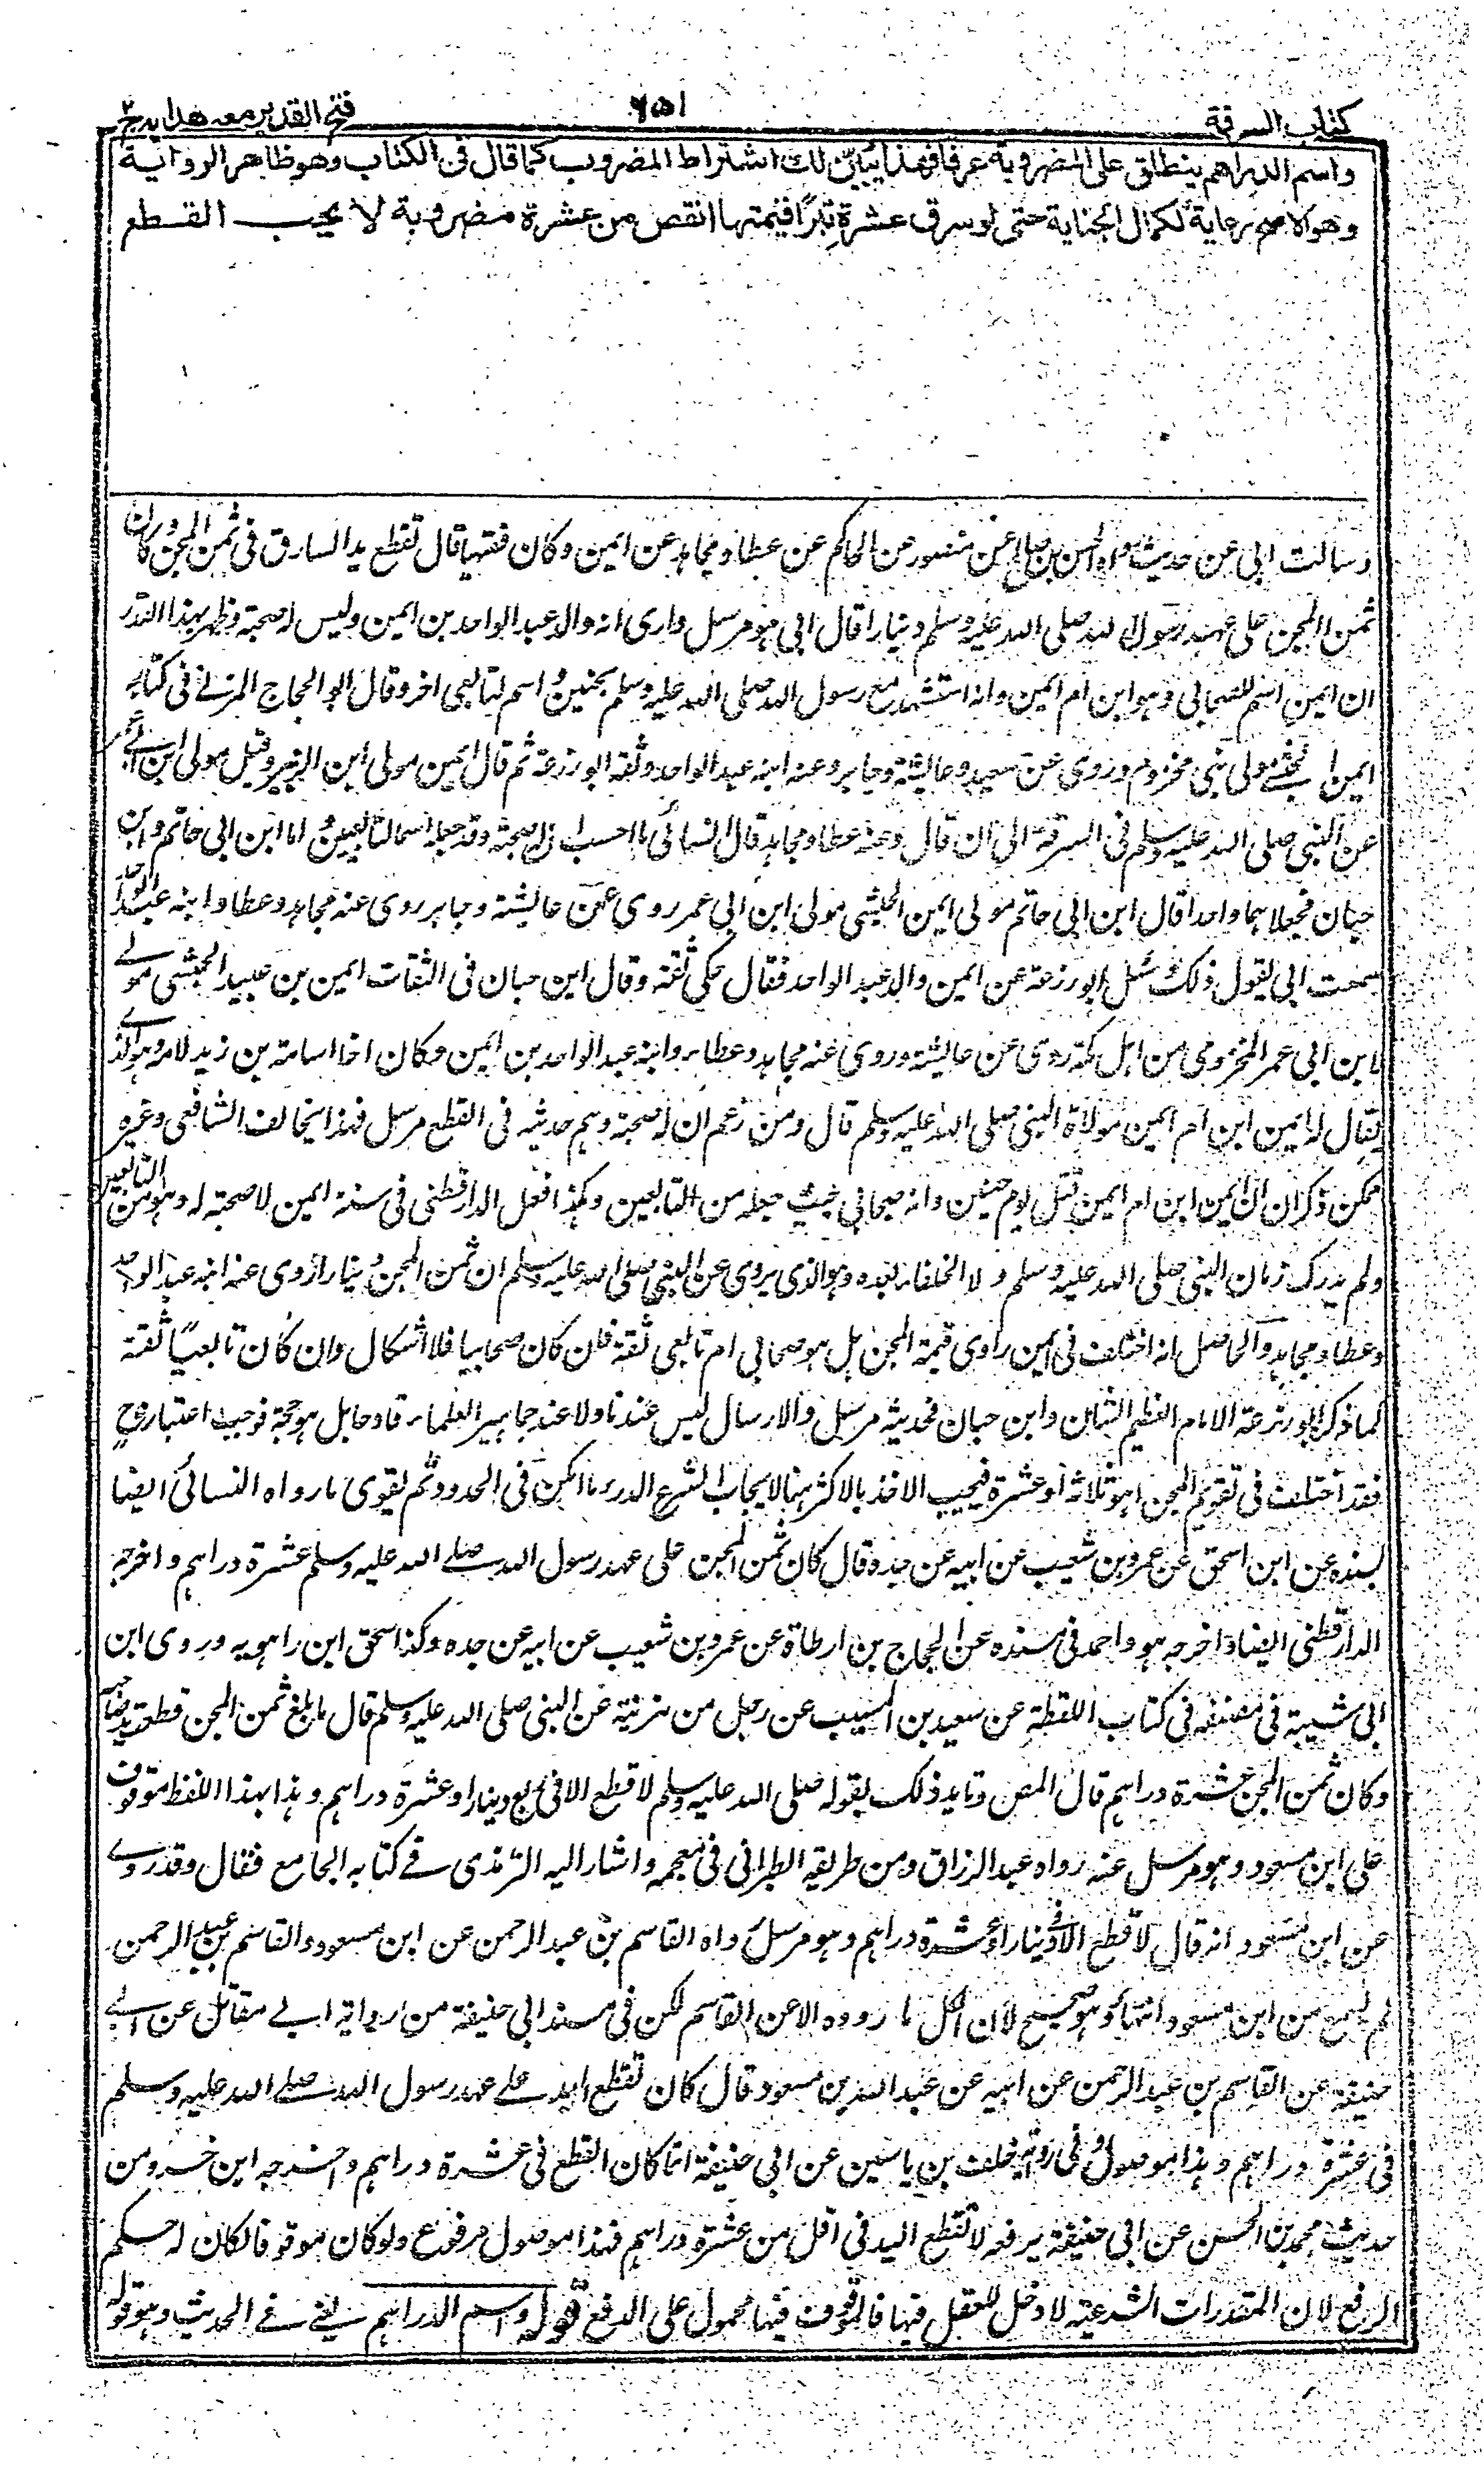 كتاب السرقة
٦٥١
فتح القدير مع هدايه ج٢
واسم الدراهم ينطلق على المضروبة عرفا فهذا يبين لك اشتراط المضروب كما قال فى الكتاب وهو ظاهر الرواية
وهو الاصح رعاية لكمال الجناية حتى لو سرق عشرة تبرًا قيمتها انقص من عشرة مضروبة لا يجب القطع
وسالت ابى عن حديث رواه الحسن بن صالح عن منصور عن الحاكم عن عطاء ومجاهد عن ايمن وكان فقيها قال تقطع يد السارق فى ثمن المجن وكان
ثمن المجن على عهد رسول الله صلى الله عليه وسلم دينارا قال ابى هو مرسل وارى انه والد عبد الواحد بن ايمن وليس له صحبة وظهر بهذا القدر
ان ايمن اسم للصحابى وهو ابن ام ايمن وانه استشهد مع رسول الله صلى الله عليه وسلم بحنين و اسم لتابعى اخر وقال ابو الحجاج المزنے فى كتابه
ايمن الحبشے مولى بنى مخزوم وروى عن سعيد وعائشة وجابر وعنه ابنه عبد الواحد وثقه ابو زرعة ثم قال ايمن مولى ابن الزبير وقيل مولى ابن ابے
عن النبى صلى الله عليه وسلم فى السرقة الى ان قال وعنه عطاء ومجاهد قال النسائى ما احسب ان له صحبة وقد جعله اسما لتابعيين واما ابن ابى حاتم وابن
حبان فجعلاهما واحدا قال ابن ابى حاتم مولى ايمن الحبشى مولى ابن ابى عمر روى عن عائشة وجابر روى عنه مجاهد وعطاء وابنه عبد الواحد
سمعت ابى يقول ذلك وسئل ابو زرعة عن ايمن والد عبد الواحد فقال مكى ثقة وقال ابن حبان فى الثقات ايمن بن عبيد الحبشى مولے
لابن ابى عمر المخزومى من اهل مكة روى عن عائشة وروى عنه مجاهد وعطاء وابنه عبد الواحد بن ايمن وكان اخا اسامة بن زيد لامه وهو الذے
يقال له ايمن ابن ام ايمن مولاة النبى صلى الله عليه وسلم قال ومن زعم ان له صحبة وهم حديثه فى القطع مرسل فهذا يخالف الشافعى وغيره
ممن ذكر ان ايمن ابن ام ايمن قتل يوم حنين وانه صحابى حيث جعله من التابعين وهكذا فعل الدارقطنى فى سننه ايمن لا صحبة له وهو من التابعين
ولم يدرك زمان النبى صلى الله عليه وسلم ولا الخلفاء بعده وهو الذى يروى عن النبى صلى الله عليه وسلم ان ثمن المجن دينار روى عنه ابنه عبد الواحد
وعطاء ومجاهد والحاصل انه اختلف فى ايمن راوى قيمة المجن هل هو صحابى ام تابعى ثقة فان كان صحابيا فلا اشكال وان كان تابعيًا ثقة
كما ذكر ابو زرعة الامام العظيم الشان وابن حبان فحديثه مرسل والارسال ليس عندنا ولا عند جماهير العلماء قادحا بل هو حجة فوجب اعتباره وح
فقد اختلف فى تقويم المجن اهو ثلاثة او عشرة فيجب الاخذ بالاكثر هنا لايجاب الشرع الدرء ما امكن فى الحدود ثم يقوى ما رواه النسائى ايضا
بسنده عن ابن اسحق عن عمرو بن شعيب عن ابيه عن جده قال كان ثمن المجن على عهد رسول الله صلے الله عليه وسلم عشرة دراهم واخرجه
الدارقطنى ايضا واخرجه هو واحمد فى مسنده عن الحجاج بن ارطاة عن عمرو بن شعيب عن ابيه عن جده وكذا اسحق ابن راهويه وروى ابن
ابى شيبة فى مصنفه فى كتاب اللقطة عن سعيد بن المسيب عن رجل من مزينة عن النبى صلى الله عليه وسلم قال ما بلغ ثمن المجن قطعت يد صاحبه
وكان ثمن المجن عشرة دراهم قال المص وتايد ذلك بقوله صلى الله عليه وسلم لا قطع الا فى دينار او عشرة دراهم وهذا بهذا اللفظ موقوف
على ابن مسعود وهو مرسل عنه رواه عبد الرزاق ومن طريقه الطبرانى فى معجمه واشار اليه الترمذى فے كتابه الجامع فقال وقد روے
عن ابن مسعود انه قال لا قطع الا فى دينار او عشرة دراهم وهو مرسل رواه القاسم بن عبد الرحمن عن ابن مسعود والقاسم بن عبد الرحمن
لم يسمع من ابن مسعود انتهى وهو صحيح لان الكل ما رووه الا عن القاسم لكن فى مسند ابى حنيفة من رواية ابے مقاتل عن ابے
حنيفة عن القاسم بن عبد الرحمن عن ابيه عن عبد الله بن مسعود قال كان تقطع اليد علے عهد رسول الله صلے الله عليه وسلم
فى عشرة دراهم وهذا موصول وفى رواية خلف بن ياسين عن ابى حنيفة انما كان القطع فى عشرة دراهم واخرجه ابن خسرو من
حديث محمد بن الحسن عن ابى حنيفة يرفعه لا تقطع اليد فى اقل من عشرة دراهم فهذا موصول مرفوع ولو كان موقوفا لكان له حكم
الرفع لان المقدرات الشرعية لا دخل للعقل فيها فالموقوف فيها محمول على الرفع قوله واسم الدراهم يعنے فے الحديث وهو قوله